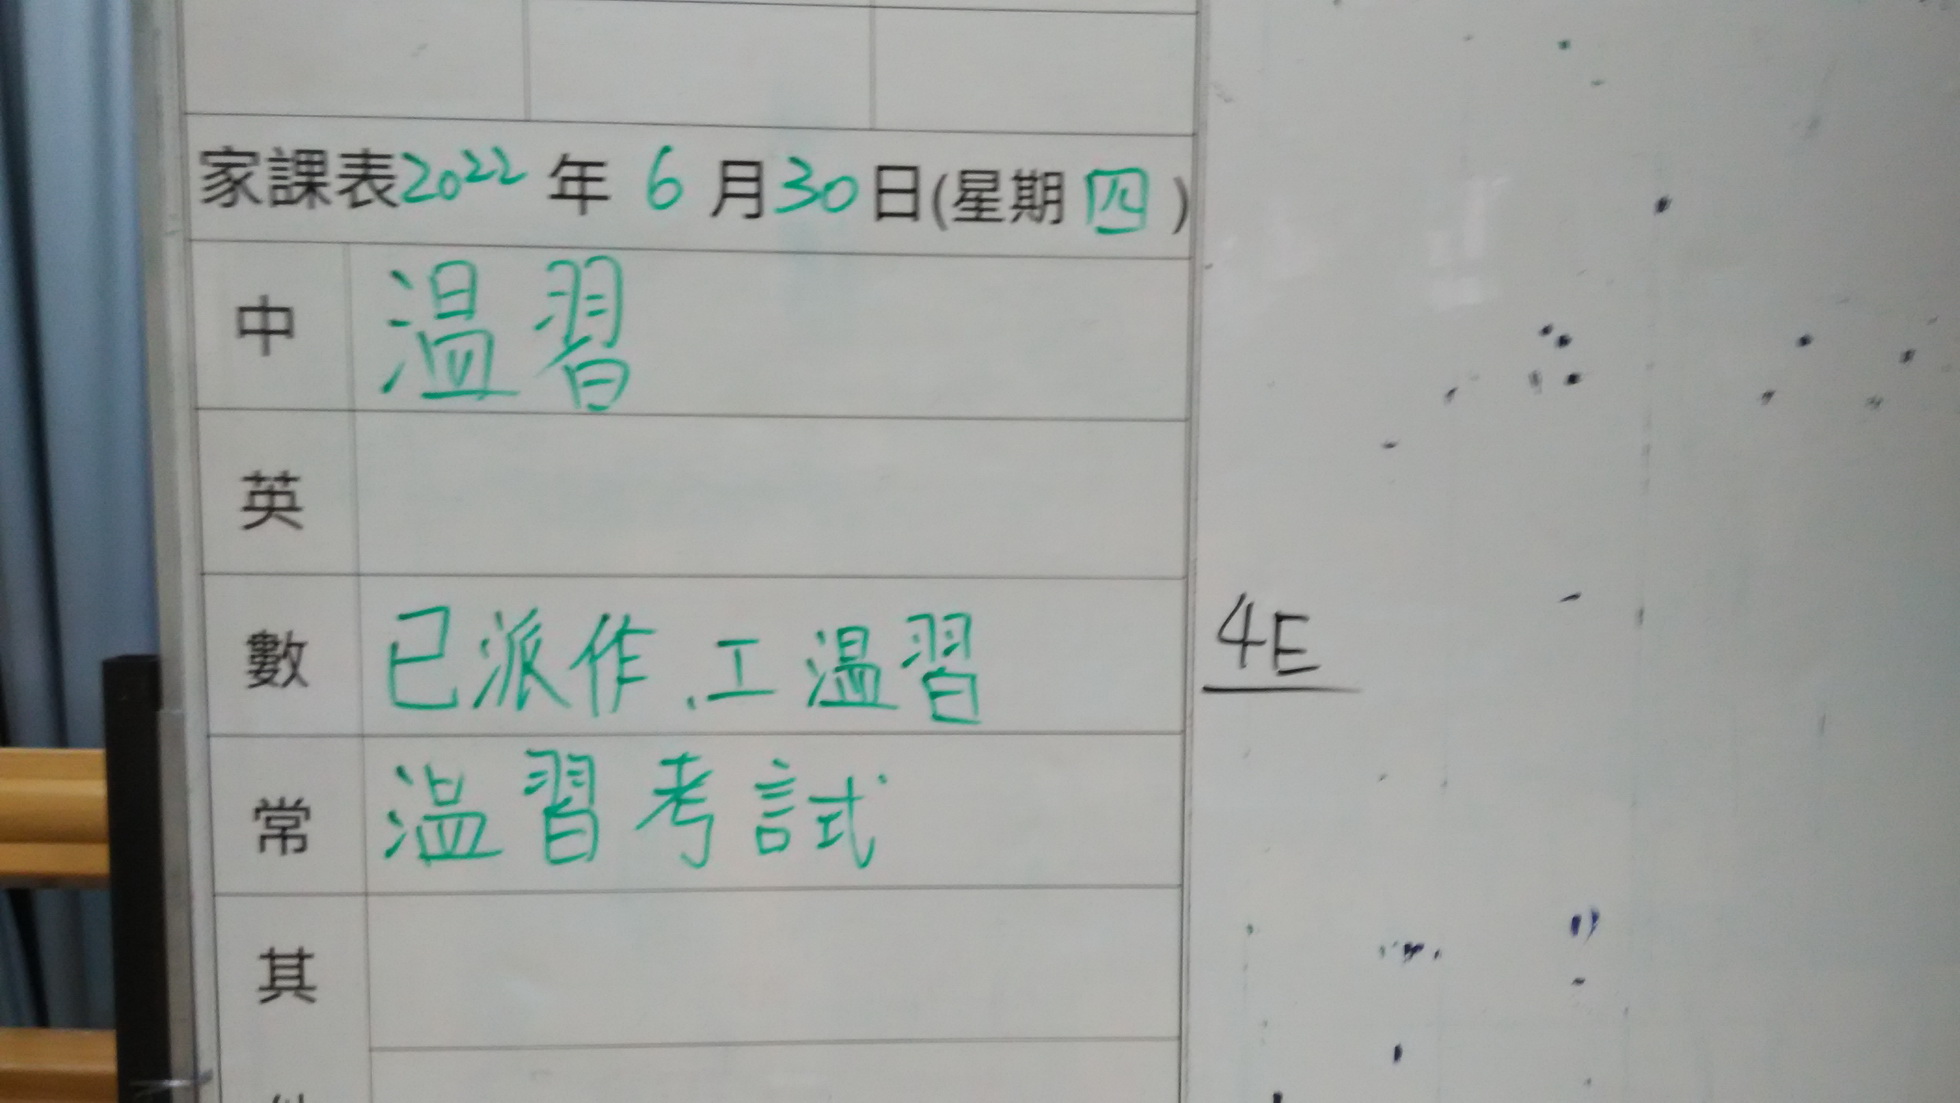 家課表2022年6月30日(星期四)
中 溫習
英
數 已派作.工溫習
4E
常 溫習考試
其